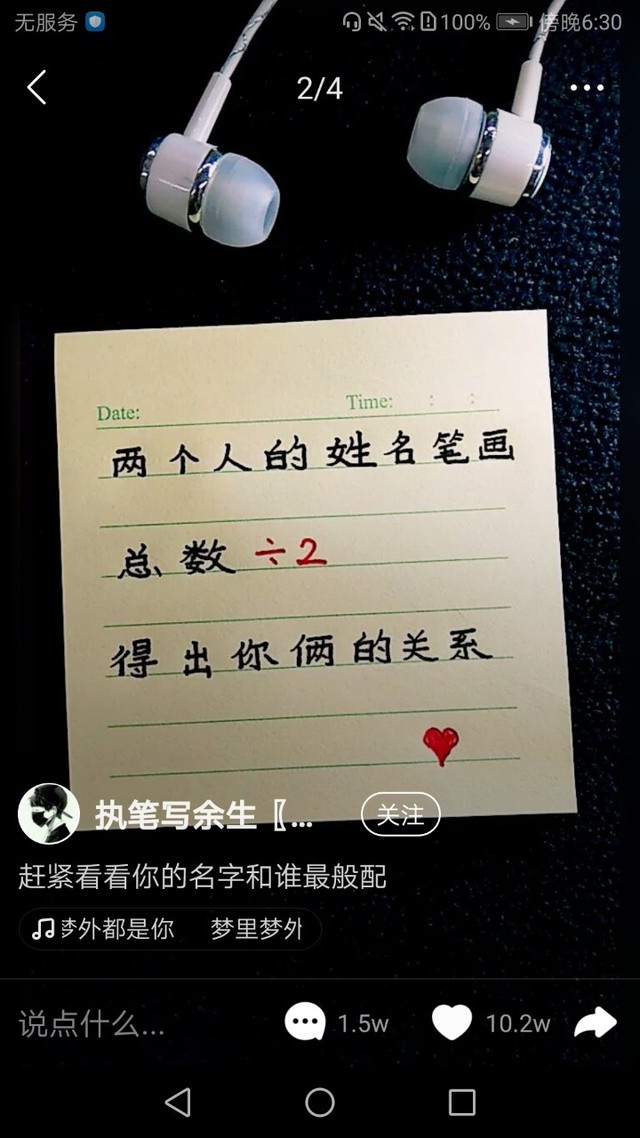 无服务 100% 傍晚6:30
2/4
Date: Time: : :
两个人的姓名笔画
总数÷2
得出你俩的关系
执笔写余生〖... 关注
赶紧看看你的名字和谁最般配
梦外都是你 梦里梦外
说点什么... 1.5w 10.2w